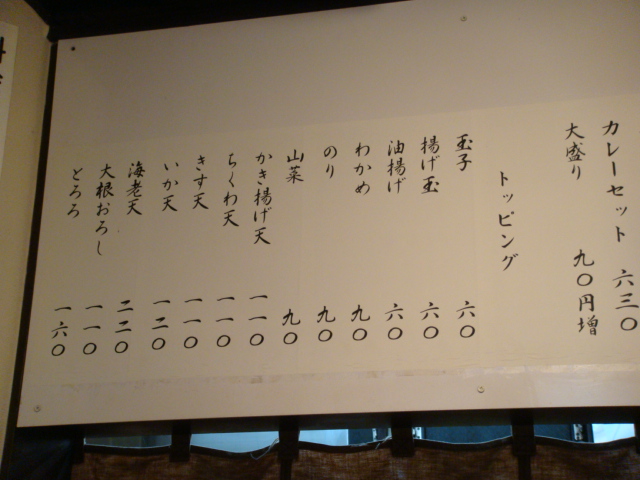 カレーセット 六三〇
大盛り 九〇円増
トッピング
玉子 六〇
揚げ玉 六〇
油揚げ 六〇
わかめ 九〇
のり 九〇
山菜 九〇
かき揚げ天 一一〇
ちくわ天 一一〇
きす天 一一〇
いか天 一二〇
海老天 二二〇
大根おろし 一一〇
とろろ 一六〇